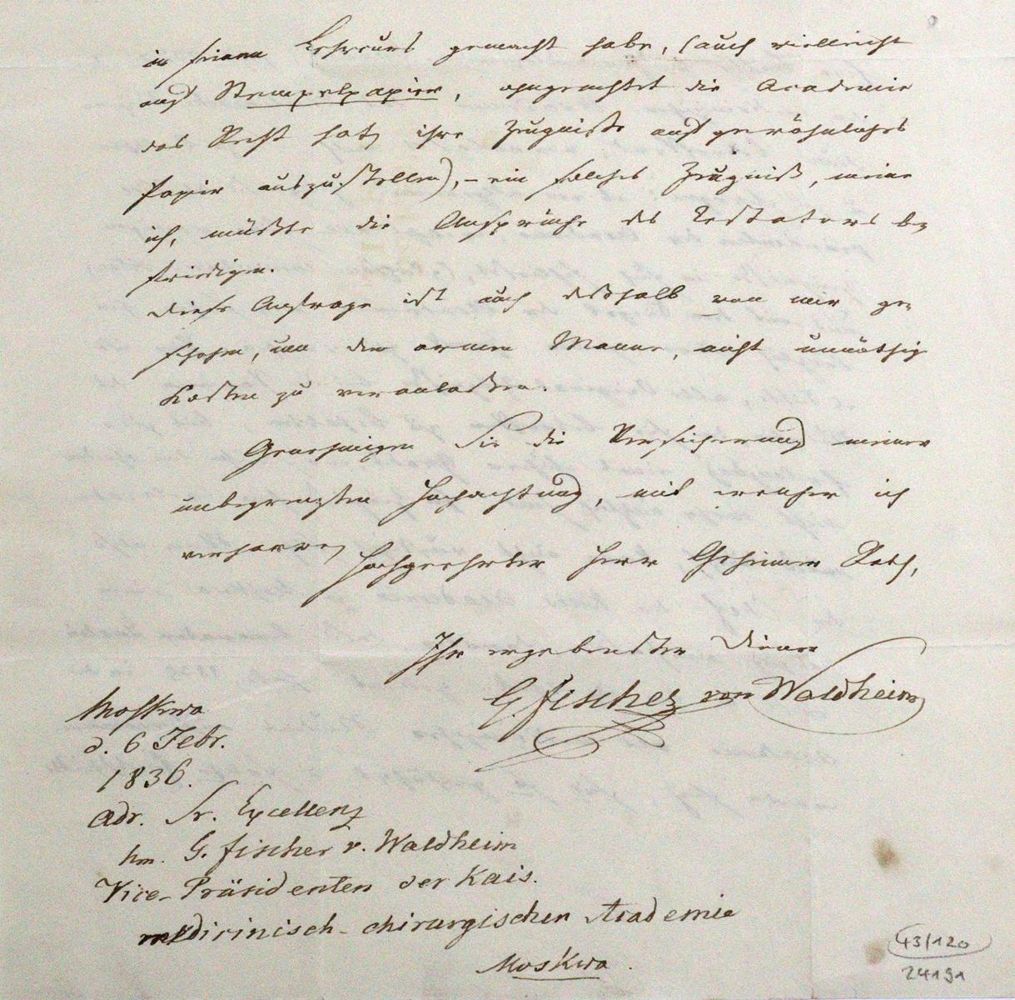 in seinem Lehrcurs gemacht habe, (auch vielleicht
auf Stempelpapier, ohngeachtet die Academie
das Recht hat, ihre Zeugnisse auf gewöhnliches
Papier auszustellen), – ein solches Zeugniß, meine
ich, müßte die Ansprüche des Testators be-
friedigen.
Diese Anfrage ist auch deßhalb von mir ge-
schehen, um den armen Manne, nicht unnöthig
Kosten zu veranlassen.
Genehmigen Sie die Versicherung meiner
unbegrenzten Hochachtung, mit welcher ich
verharre,
Hochgeehrter Herr Geheimer Rath,
Ihr ergebenster Diener
G. Fischer von Waldheim
Moskwa
d. 6 Febr.
1836.
Adr. Sr. Excellenz
hn. G. Fischer v. Waldheim
Vice-Präsidenten der Kais.
medicinisch-chirurgischen Academie
Moskwa.
43/120
24191